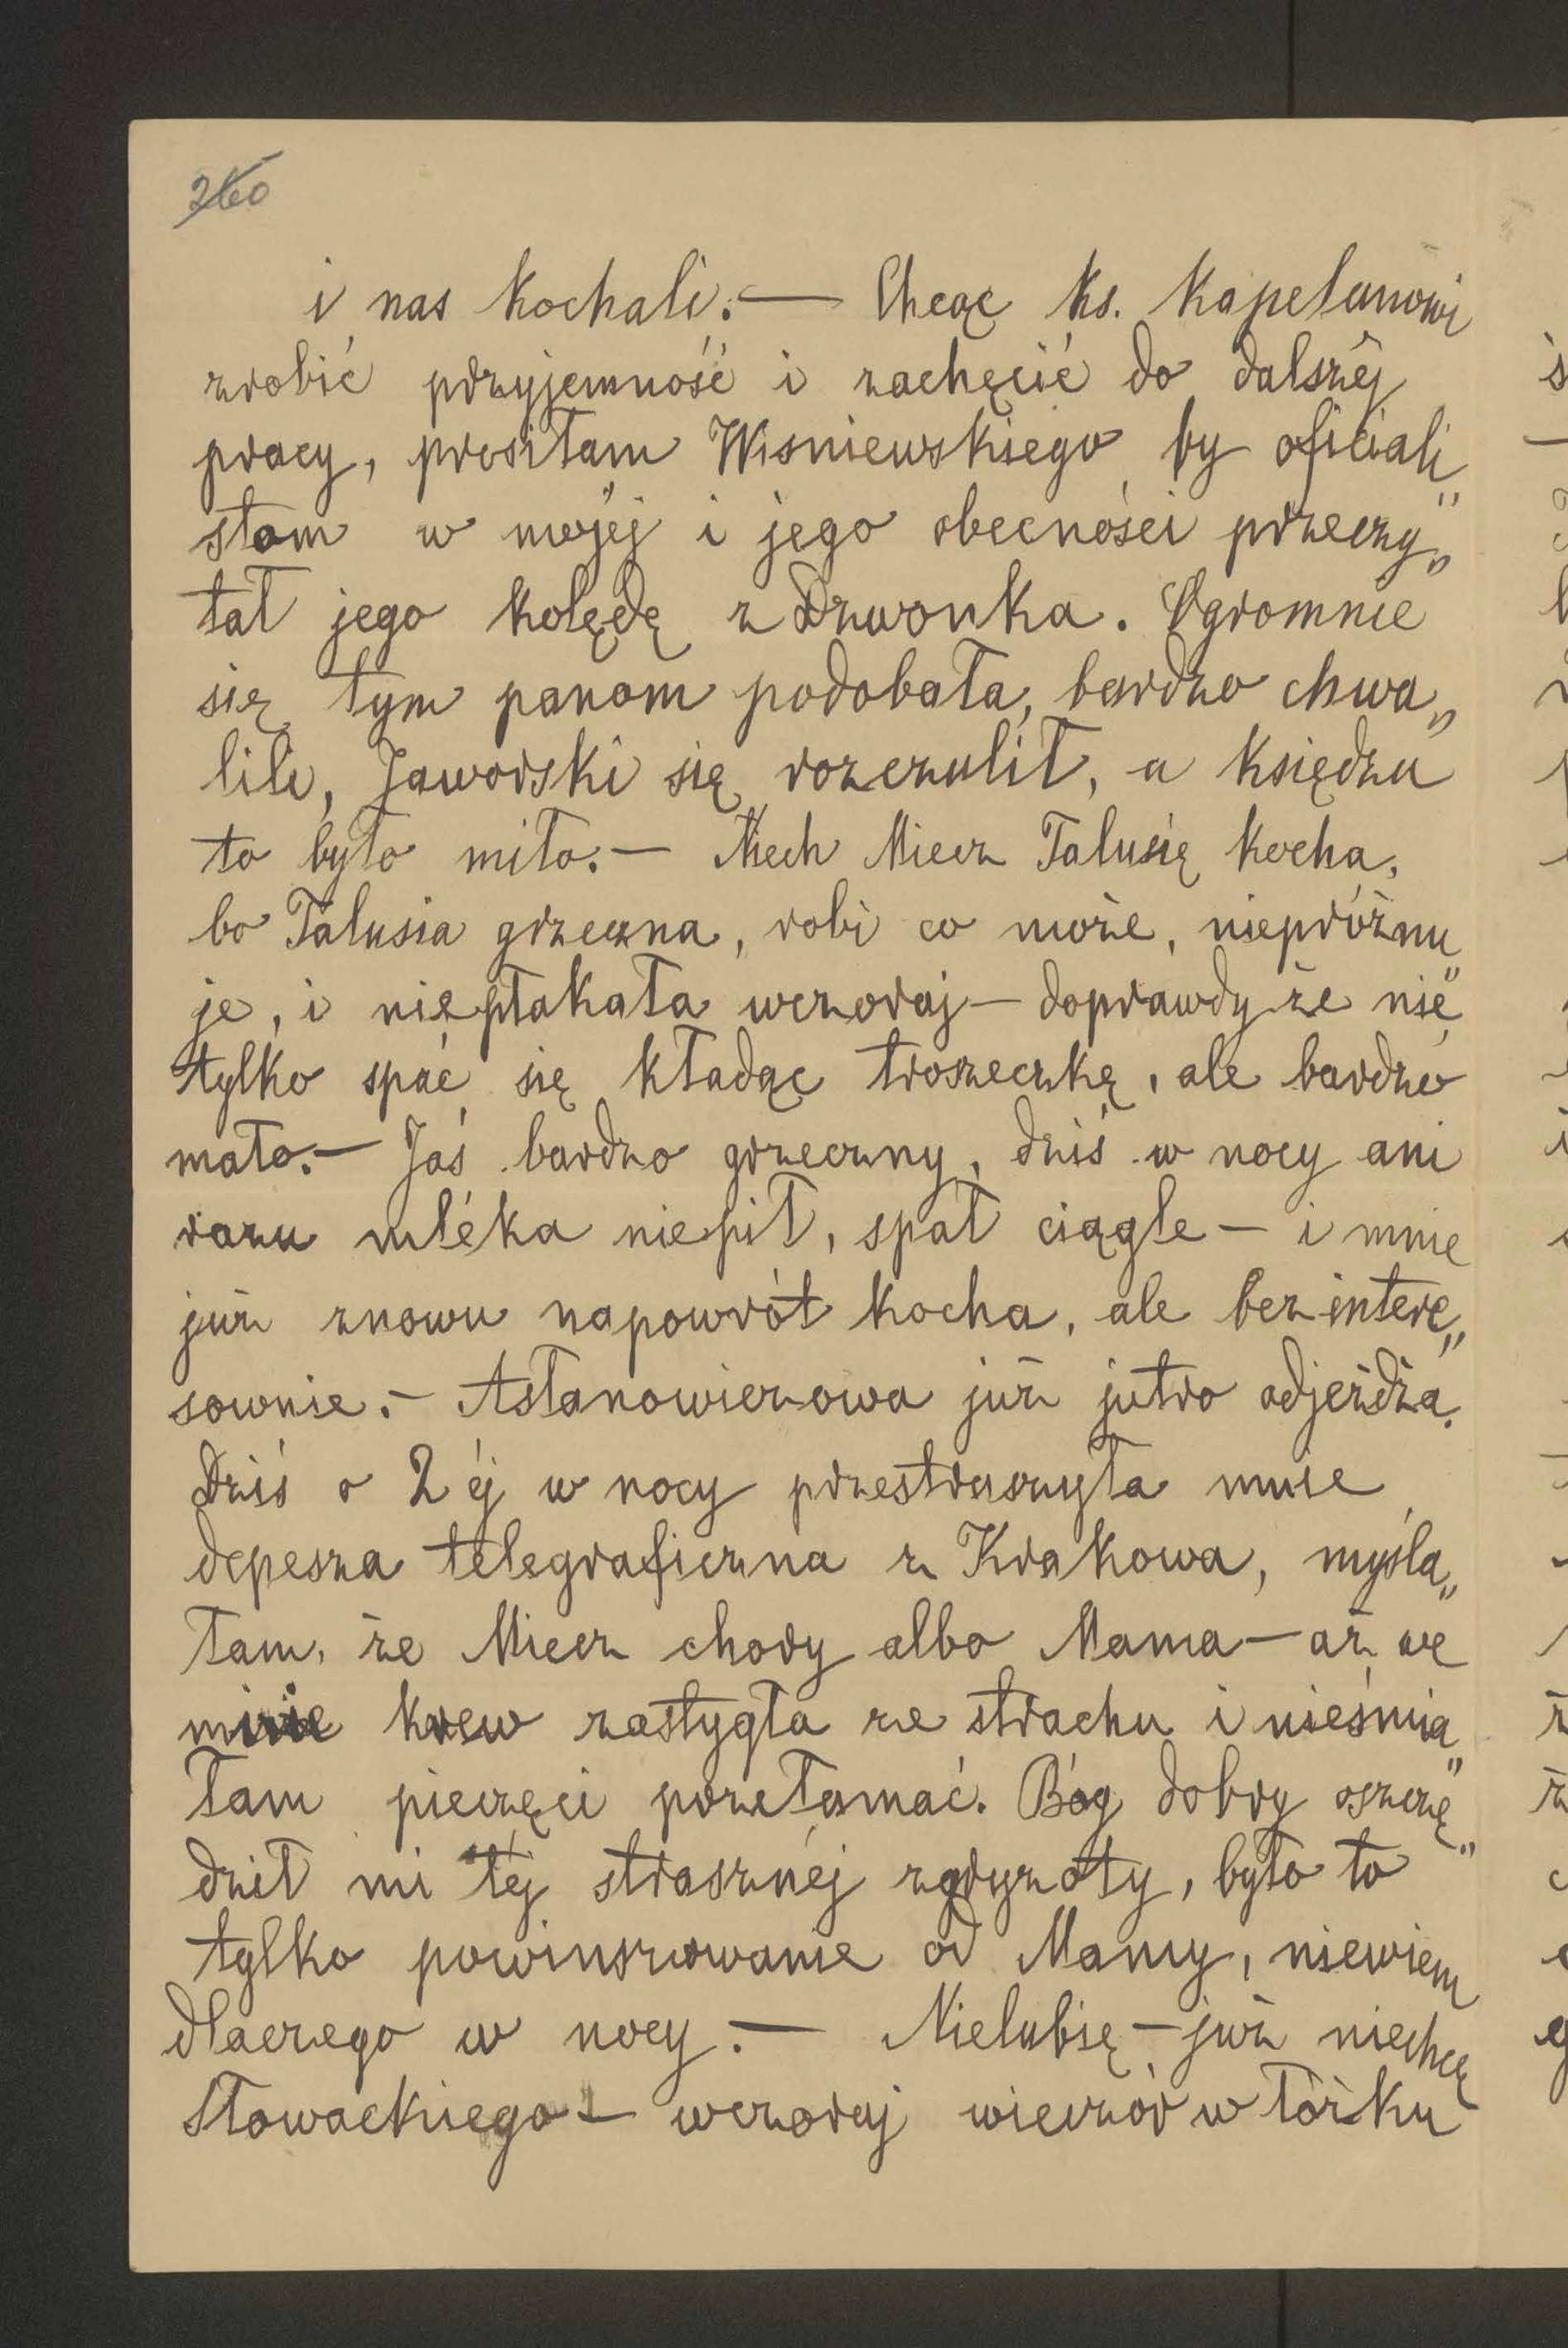 260
i nas kochali. — Chcąc ks. Kapelanowi
zrobić przyjemność i zachęcić do dalszéj
pracy, prosiłam Wisniewskiego by oficiali„
stom w mojéj i jego obecności przeczy„
tał jego kolędę z Dzwonka. Ogromnie
się tym panom podobała, bardzo chwa„
lili, Jaworski się rozczulił, a księdzu
to było miło. — Niech Miecz Talusię kocha,
bo Talusia grzeczna, robi co może, niepróżnu„
je, i niepłakała wczoraj — doprawdy że nie,
tylko spać się kładąc troszeczkę, ale bardzo
mało. — Jaś bardzo grzeczny, dziś w nocy ani
razu mléka niepił, spał ciągle — i mnie
już znowu napowrót kocha, ale bezintere„
sownie. — Astanowiczowa już jutro odjeżdża.
Dziś o 2 éj w nocy przestraszyła mnie
depesza telegraficzna z Krakowa, myśla„
łam, że Miecz chory albo Mama — aż we
mnie krew zastygła ze strachu i nieśmia„
łam pieczęci przełamać. Bóg dobry oszczę„
dził mi téj strasznéj zgryzoty, było to
tylko powinszowanie od Mamy, niewiem
dlaczego w nocy. — Nielubię — już niechcę
Słowackiego — wczoraj wieczór w łóżku